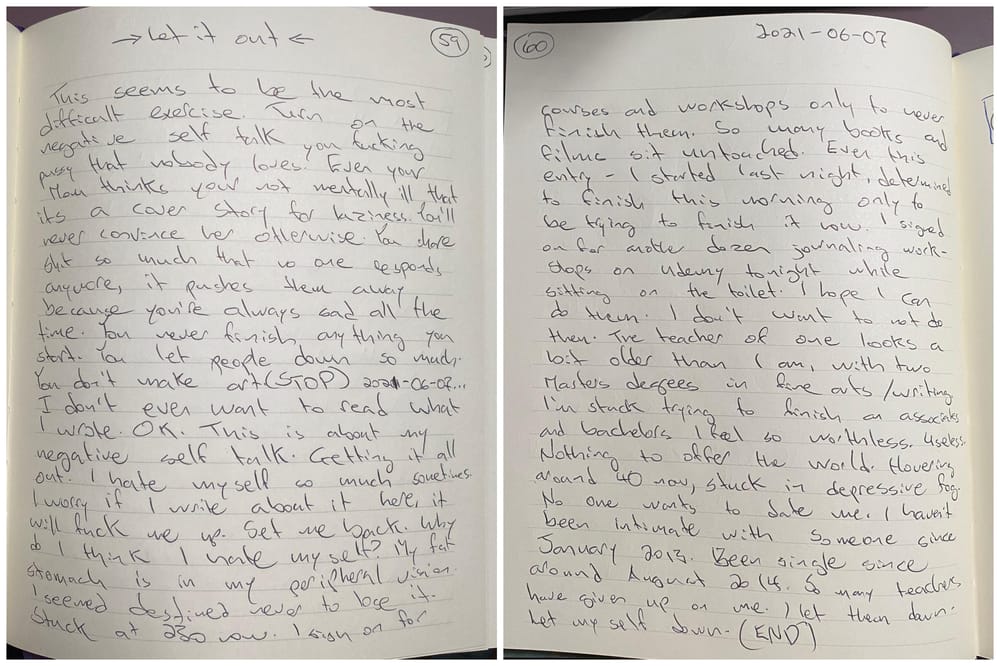 → Let it out ←
59
This seems to be the most
difficult exercise. Turn on the
negative self talk you fucking
pussy that nobody loves. Even your
Mom thinks your not mentally ill that
its a cover story for laziness. You'll
never convince her otherwise. You share
shit so much that no one responds
anymore, it pushes them away
because you're always sad all the
time. You never finish anything you
start. You let people down so much.
You don't make art (STOP) 2021-06-07...
I don't even want to read what
I wrote. OK. This is about my
negative self talk. Getting it all
out. I hate myself so much sometimes.
I worry if I write about it here, it
will fuck me up. Set me back. Why
do I think I hate myself? My fat
stomach is in my peripheral vision.
I seemed destined never to lose it.
Stuck at 250 now. I sign on for
60
2021-06-07
courses and workshops only to never
finish them. So many books and
films sit untouched. Even this
entry - I started last night, determined
to finish this morning only to
be trying to finish it now. I signed
on for another dozen journaling work-
shops on Udemy tonight while
sitting on the toilet. I hope I can
do them. I don't want to not do
them. The teacher of one looks a
bit older than I am, with two
Masters degrees in fine arts/writing.
I'm stuck trying to finish an associates
and bachelors. I feel so worthless. Useless.
Nothing to offer the world. Hovering
around 40 now, stuck in depressive fog.
No one wants to date me. I haven't
been intimate with someone since
January 2013. Been single since
around August 2014. So many teachers
have given up on me. I let them down.
Let my self down. (END)